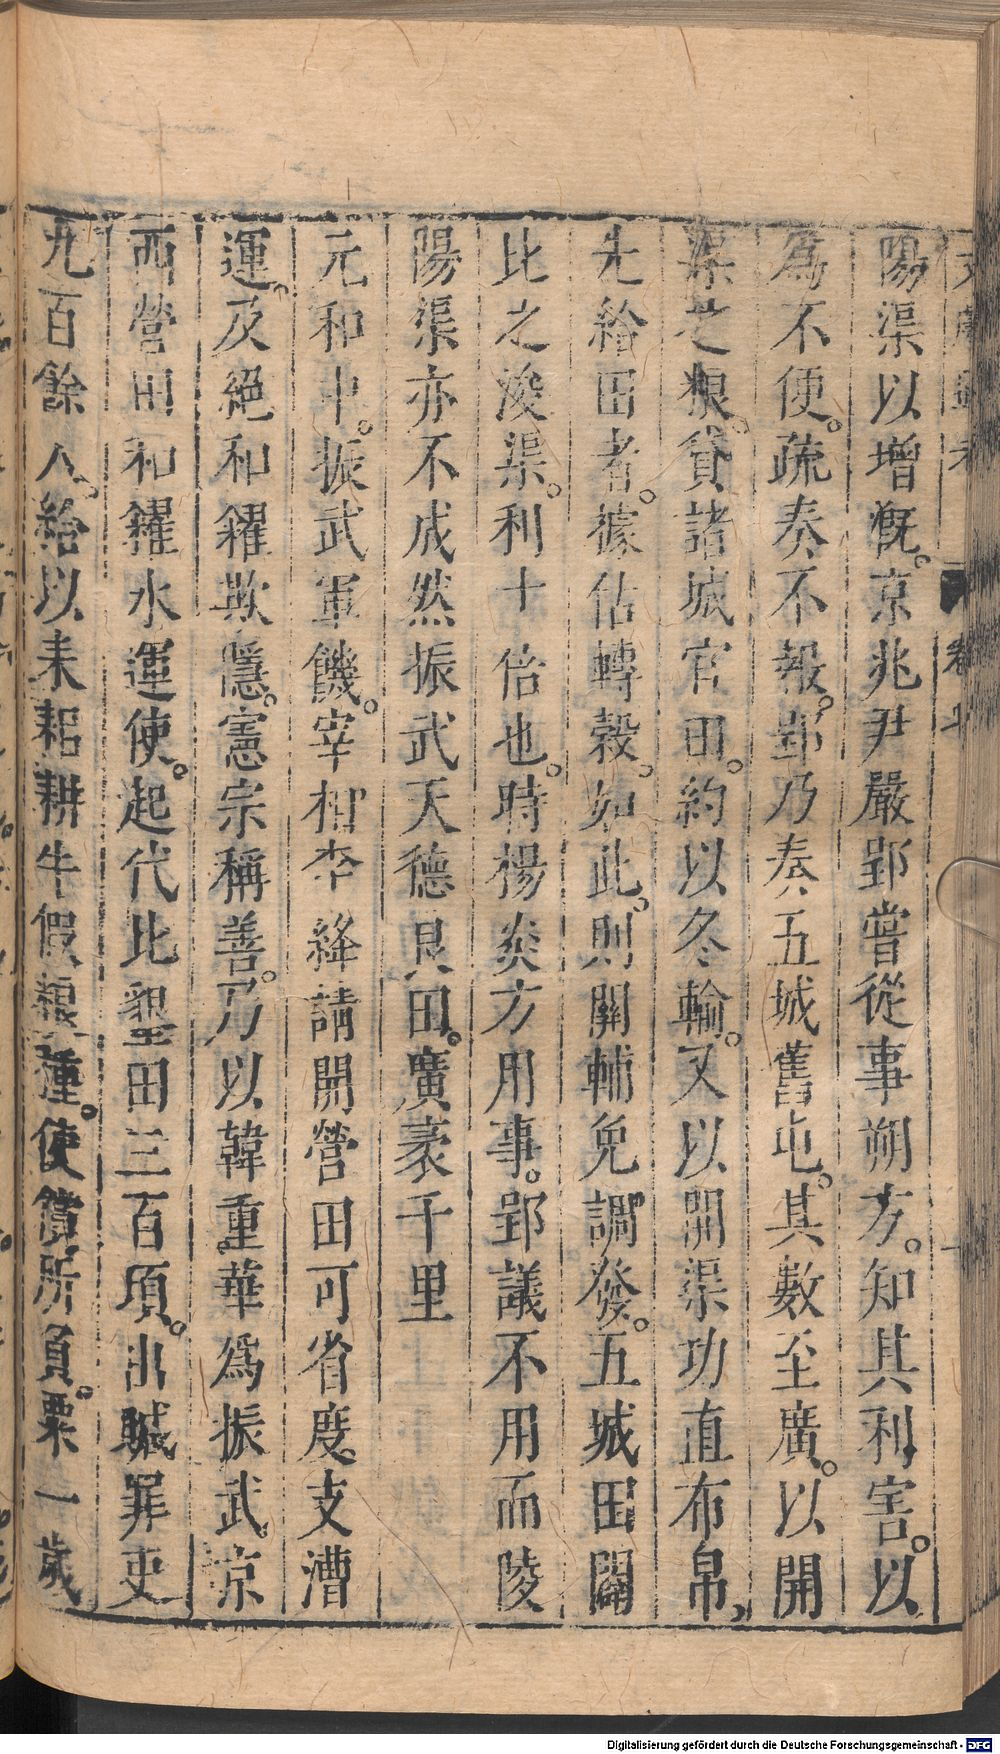 陽渠以增溉。京兆尹嚴郢嘗從事朔方。知其利害。以
為不便。疏奏不報。郢乃奏五城舊屯。其數至廣。以開
渠之粮。貸諸城官田。約以冬輸。又以開渠功直布帛、
先給田者。據估轉穀。如此。則關輔免調發。五城田闢
比之浚渠。利十倍也。時楊炎方用事。郢議不用而陵
陽渠亦不成然振武天德良田。廣袤千里
元和中。振武軍饑。宰相李絳請開營田可省度支漕
運。及絕和糴欺隱。憲宗稱善。乃以韓重華為振武京
西營田和糴水運使。起代比墾田三百頃。出贓罪吏
九百餘人。給以耒耜耕牛假粮種。使償所負。粟一歲
卷七
Digitalisierung gefördert durch die Deutsche Forschungsgemeinschaft - DFG